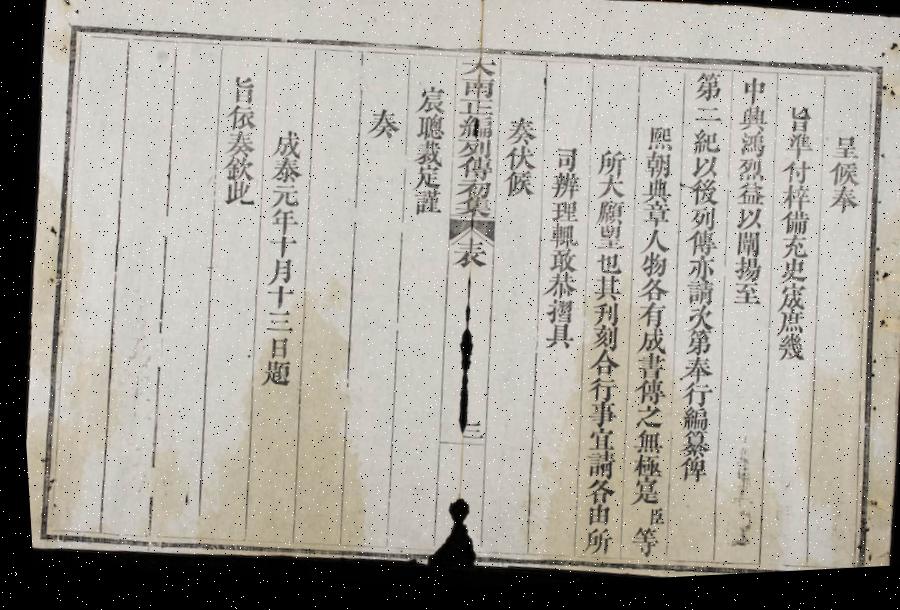 呈候奉
旨準付梓備充史宬庶幾
中興鴻烈益以闡揚至
第二紀以後列傳亦請次第奉行編纂俾
熙朝典章人物各有成書傳之無極寔臣等
所大願望也其刋刻合行事宜請各由所
司辨理輒敢恭摺具
奏伏候
大南正編列傳初集 表 三
宸聰裁定謹
奏
成泰元年十月十三日題
旨依奏欽此